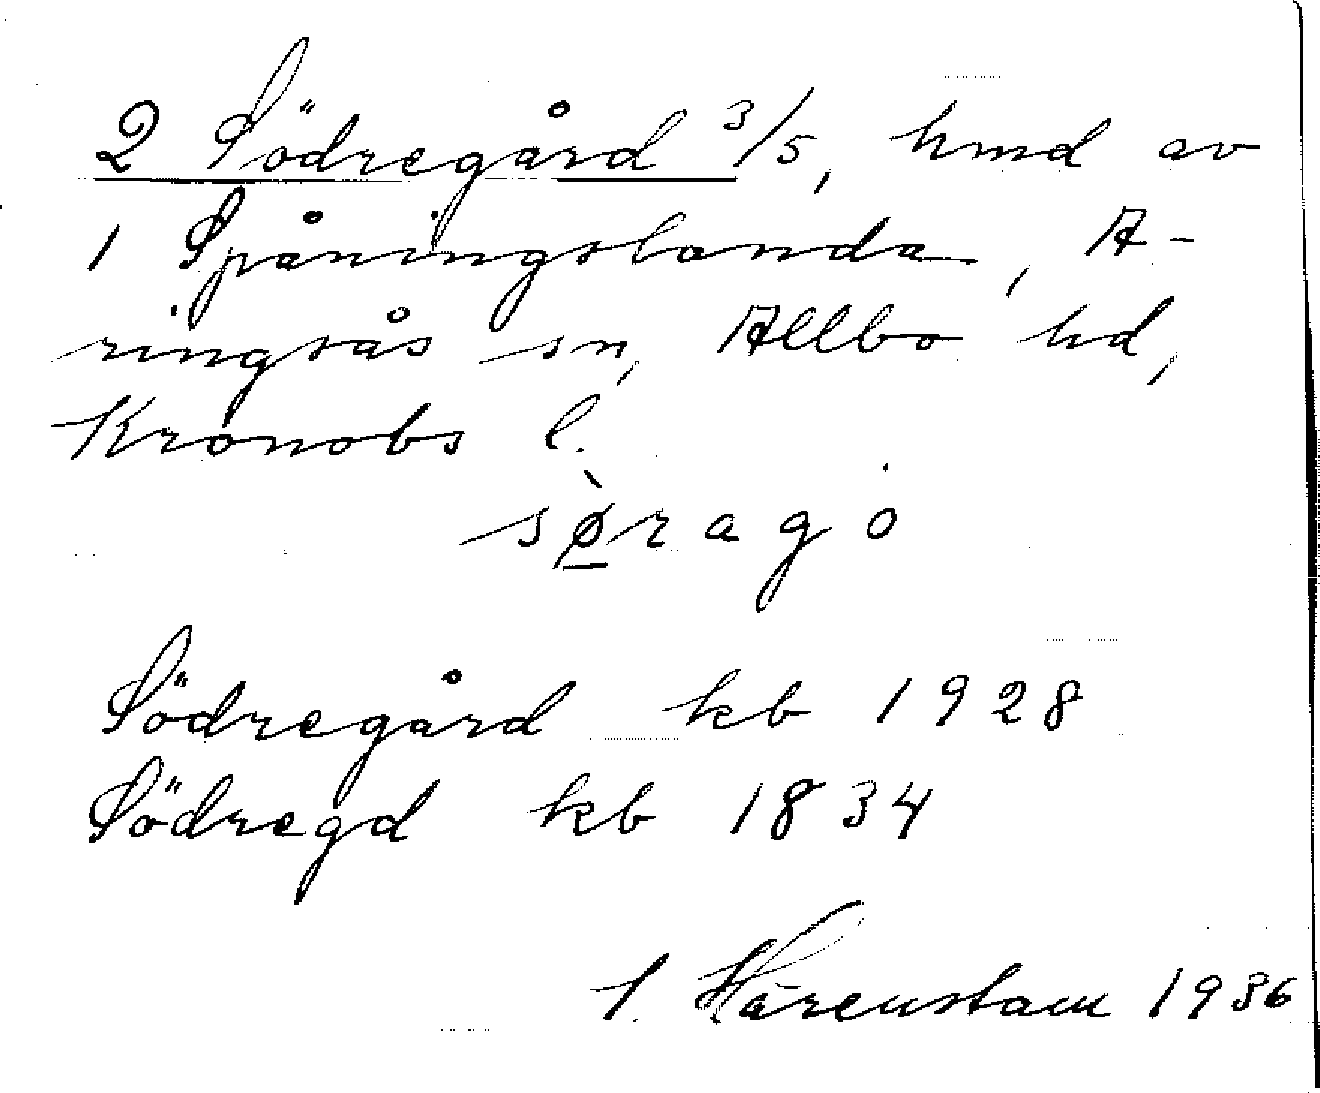 2 Södregård 3/5, hmd av
1 Spåningslanda, A-
ringsås sn, Allbo hd,
Kronobs l.
sø̀rago
Södregård kb 1928
Södregd kb 1834
I. Härenstam 1936